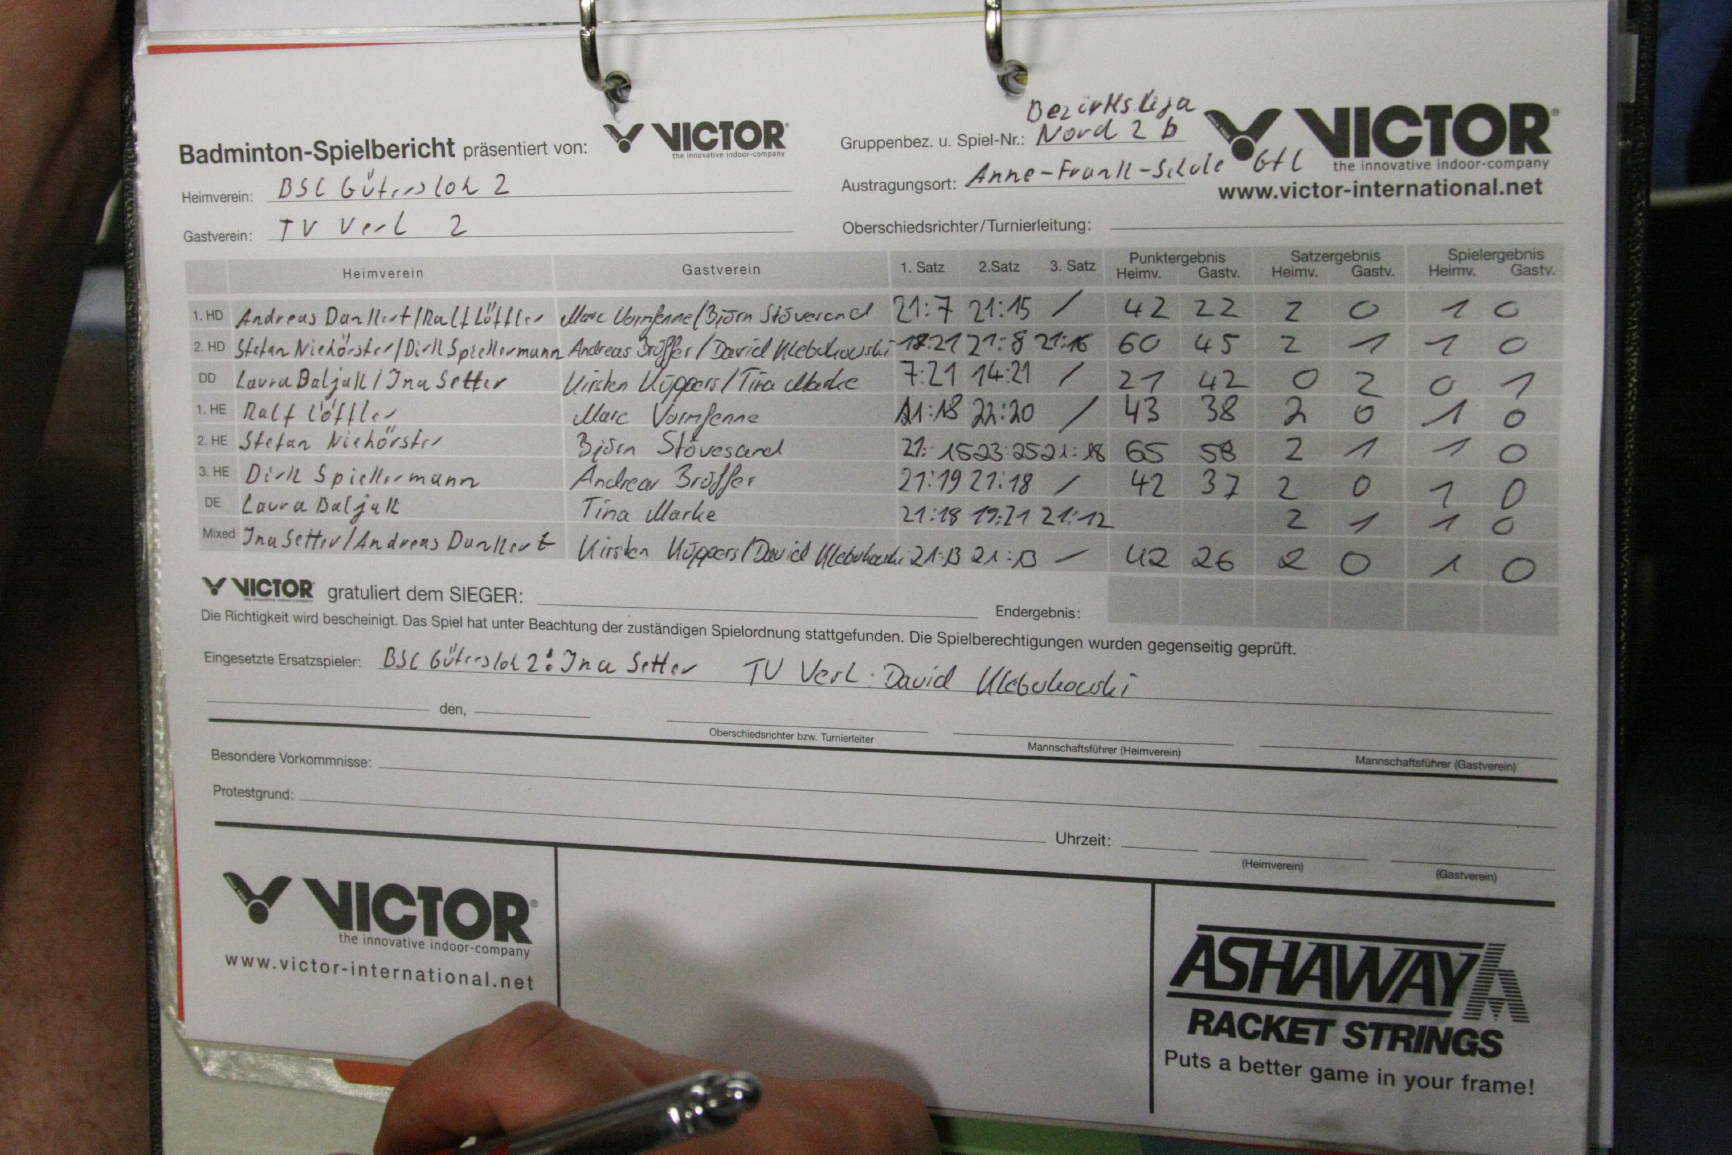 Bezirksliga
Badminton-Spielbericht präsentiert von: VICTOR the innovative indoor-company Gruppenbez. u. Spiel-Nr.: Nord 2 b VICTOR
the innovative indoor-company
Heimverein: BSC Gütersloh 2 Austragungsort: Anne-Frank-Schule Gtl www.victor-international.net
Gastverein: TV Verl 2 Oberschiedsrichter/Turnierleitung:
Heimverein Gastverein 1. Satz 2.Satz 3. Satz Punktergebnis Satzergebnis Spielergebnis
Heimv. Gastv. Heimv. Gastv. Heimv. Gastv.
1. HD Andreas Dunkert/Ralf Löffler Marc Vormfenne/Björn Stövesand 21:7 21:15 / 42 22 2 0 1 0
2. HD Stefan Niehörster/Dirk Spiekermann Andreas Bröffer/David Klebukowski 18:21 21:8 21:16 60 45 2 1 1 0
DD Laura Baljak/Ina Setter Kirsten Küppers/Tina Marke 7:21 14:21 / 21 42 0 2 0 1
1. HE Ralf Löffler Marc Vormfenne 21:18 22:20 / 43 38 2 0 1 0
2. HE Stefan Niehörster Björn Stövesand 21:15 23:25 21:18 65 58 2 1 1 0
3. HE Dirk Spiekermann Andreas Bröffer 21:19 21:18 / 42 37 2 0 1 0
DE Laura Baljak Tina Marke 21:18 19:21 21:12 2 1 1 0
Mixed Ina Setter/Andreas Dunkert Kirsten Küppers/David Klebukowski 21:13 21:13 / 42 26 2 0 1 0
VICTOR gratuliert dem SIEGER: Endergebnis:
Die Richtigkeit wird bescheinigt. Das Spiel hat unter Beachtung der zuständigen Spielordnung stattgefunden. Die Spielberechtigungen wurden gegenseitig geprüft.
Eingesetzte Ersatzspieler: BSC Gütersloh 2: Ina Setter TV Verl: David Klebukowski
den,
Oberschiedsrichter bzw. Turnierleiter Mannschaftsführer (Heimverein) Mannschaftsführer (Gastverein)
Besondere Vorkommnisse:
Protestgrund:
Uhrzeit:
(Heimverein) (Gastverein)
VICTOR
the innovative indoor-company
www.victor-international.net
ASHAWAY
RACKET STRINGS
Puts a better game in your frame!